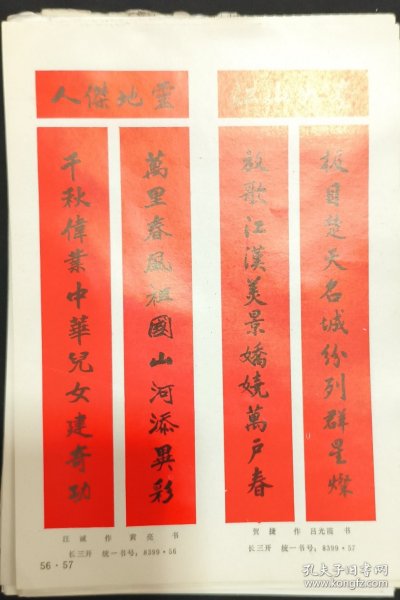 人傑地靈
萬里春風祖國山河添異彩
千秋偉業中華兒女建奇功
汪诚 作 黄亮 书
长三开 统一书号：8399·56
极目楚天名城纷列群星燦
放歌江漢美景嬌嬈萬戶春
贺捷 作 吕光 书
长三开 统一书号：8399·57
56·57